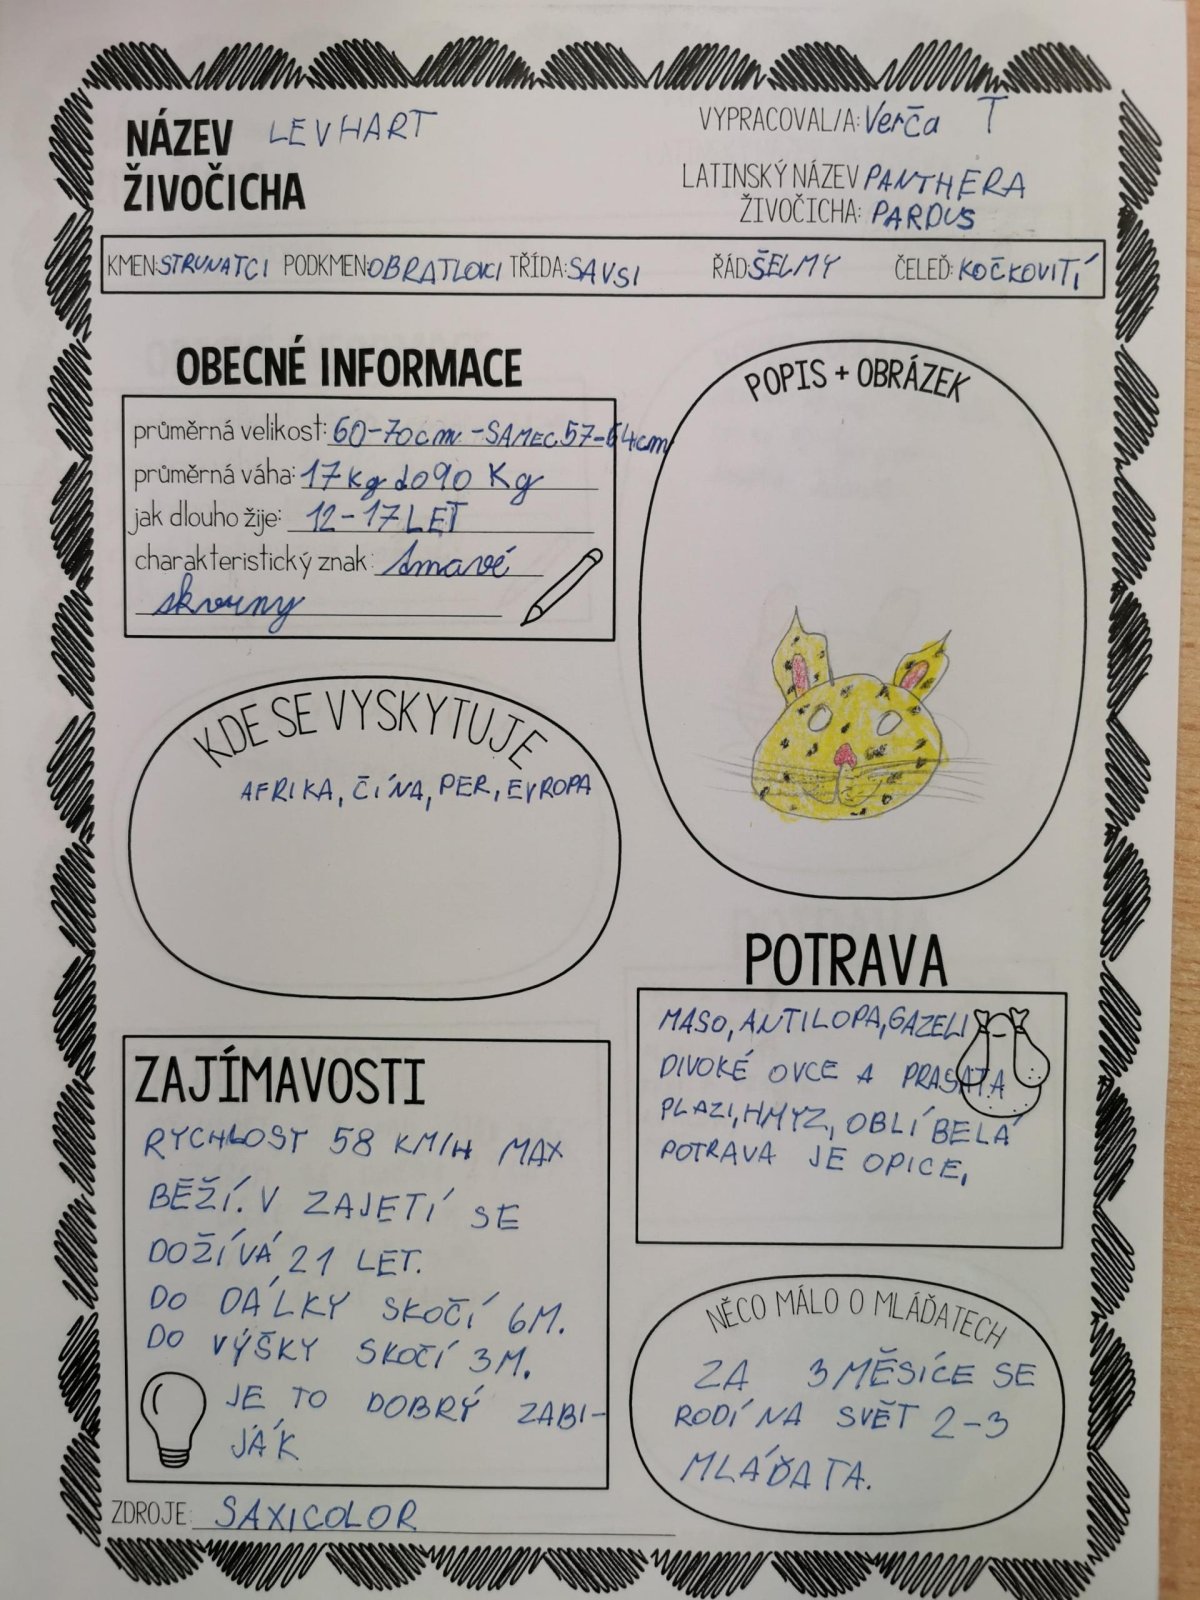 NÁZEV LEVHART
ŽIVOČICHA
VYPRACOVAL/A: Verča T
LATINSKÝ NÁZEV PANTHERA
ŽIVOČICHA: PARDUS
KMEN: STRUNATCI PODKMEN: OBRATLOVCI TŘÍDA: SAVSI ŘÁD: ŠELMY ČELEĎ: KOČKOVITÍ
OBECNÉ INFORMACE
průměrná velikost: 60-70cm - SAMEC 57-64cm
průměrná váha: 17 kg do 90 Kg
jak dlouho žije: 12-17 LET
charakteristický znak: tmavé
skvrny
POPIS + OBRÁZEK
KDE SE VYSKYTUJE
AFRIKA, ČÍNA, PER, EVROPA
POTRAVA
MASO, ANTILOPA, GAZELI
DIVOKÉ OVCE A PRASATA
PLAZI, HMYZ, OBLÍBELÁ
POTRAVA JE OPICE,
ZAJÍMAVOSTI
RYCHLOST 58 KM/H MAX
BĚŽÍ. V ZAJETÍ SE
DOŽÍVÁ 21 LET.
DO DÁLKY SKOČÍ 6M.
DO VÝŠKY SKOČÍ 3M.
JE TO DOBRÝ ZABI-
JÁK
NĚCO MÁLO O MLÁĎATECH
ZA 3 MĚSÍCE SE
RODÍ NA SVĚT 2-3
MLÁĎATA.
ZDROJE: SAXICOLOR